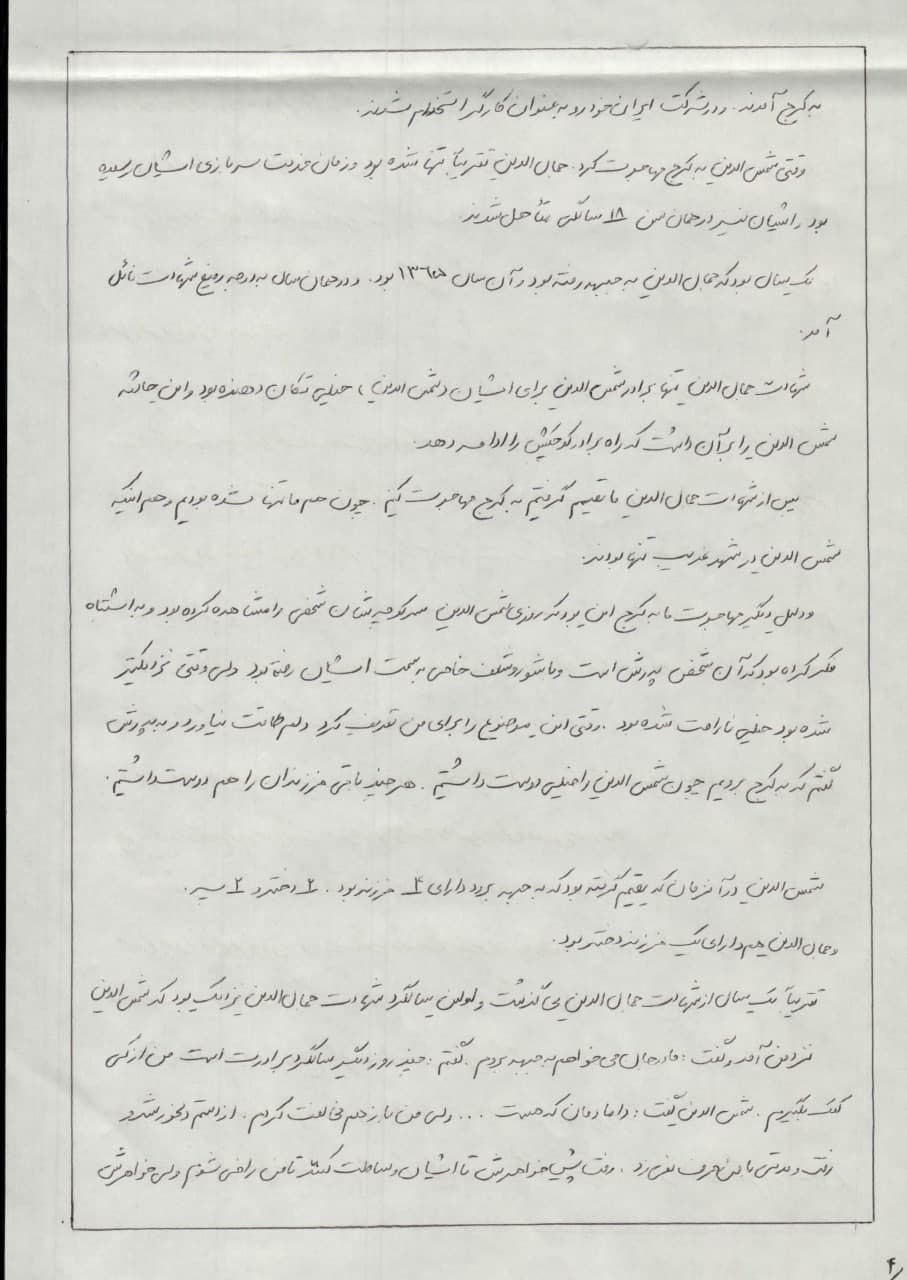 به کرج آمدند. و در شرکت ایران خودرو به عنوان کارگر استخدام شدند.
وقتی شمس الدین به کرج مهاجرت کرد. جمال الدین تقریباً تنها شده بود و زمان خدمت سربازی ایشان رسیده
بود و ایشان نیز در همان سن ۱۸ سالگی متأهل شدند.
یک سال بود که جمال الدین به جبهه رفته بود و آن سال ۱۳۶۵ بود. و در همان سال به درجه رفیع شهادت نائل
آمد.
شهادت جمال الدین تنها برادر شمس الدین برای ایشان (شمس الدین) خیلی تکان دهنده بود و این حادثه
شمس الدین را بر آن داشت که راه برادر کوچکش را ادامه دهد.
پس از شهادت جمال الدین ما تصمیم گرفتیم به کرج مهاجرت کنیم. چون هم ما تنها شده بودیم و هم اینکه
شمس الدین در شهر غریب تنها بودند.
و دلیل دیگر مهاجرت ما به کرج این بود که روزی شمس الدین سر کوچه شان شخصی را مشاهده کرده بود و به اشتباه
فکر کرده بود که آن شخص پدرش است و با شور و شعف خاصی به سمت ایشان رفته بود ولی وقتی نزدیکتر
شده بود خیلی ناراحت شده بود. وقتی این موضوع را برای من تعریف کرد دلم طاقت نیاورد و به پدرش
گفتم که به کرج برویم چون شمس الدین را خیلی دوست داشتیم. هر چند باقی فرزندان را هم دوست داشتیم.
شمس الدین در آن زمان که تصمیم گرفته بود که به جبهه برود دارای ۴ فرزند بود. ۲ دختر و ۲ پسر.
و جمال الدین هم دارای یک فرزند دختر بود.
تقریباً یک سال از شهادت جمال الدین می گذشت و اولین سالگرد شهادت جمال الدین نزدیک بود که شمس الدین
نزد من آمد و گفت: مادر جان می خواهم به جبهه بروم. گفتم: چند روز دیگر سالگرد برادرت است من از کی
کمک بگیرم. شمس الدین گفت: دامادمان که هست ... ولی من باز هم مخالفت کردم. از دستم دلخور شد و
رفت و مدتی با من حرف نمی زد. رفت پیش خواهرش تا ایشان وساطت کنند تا من راضی شوم ولی خواهرش
۴